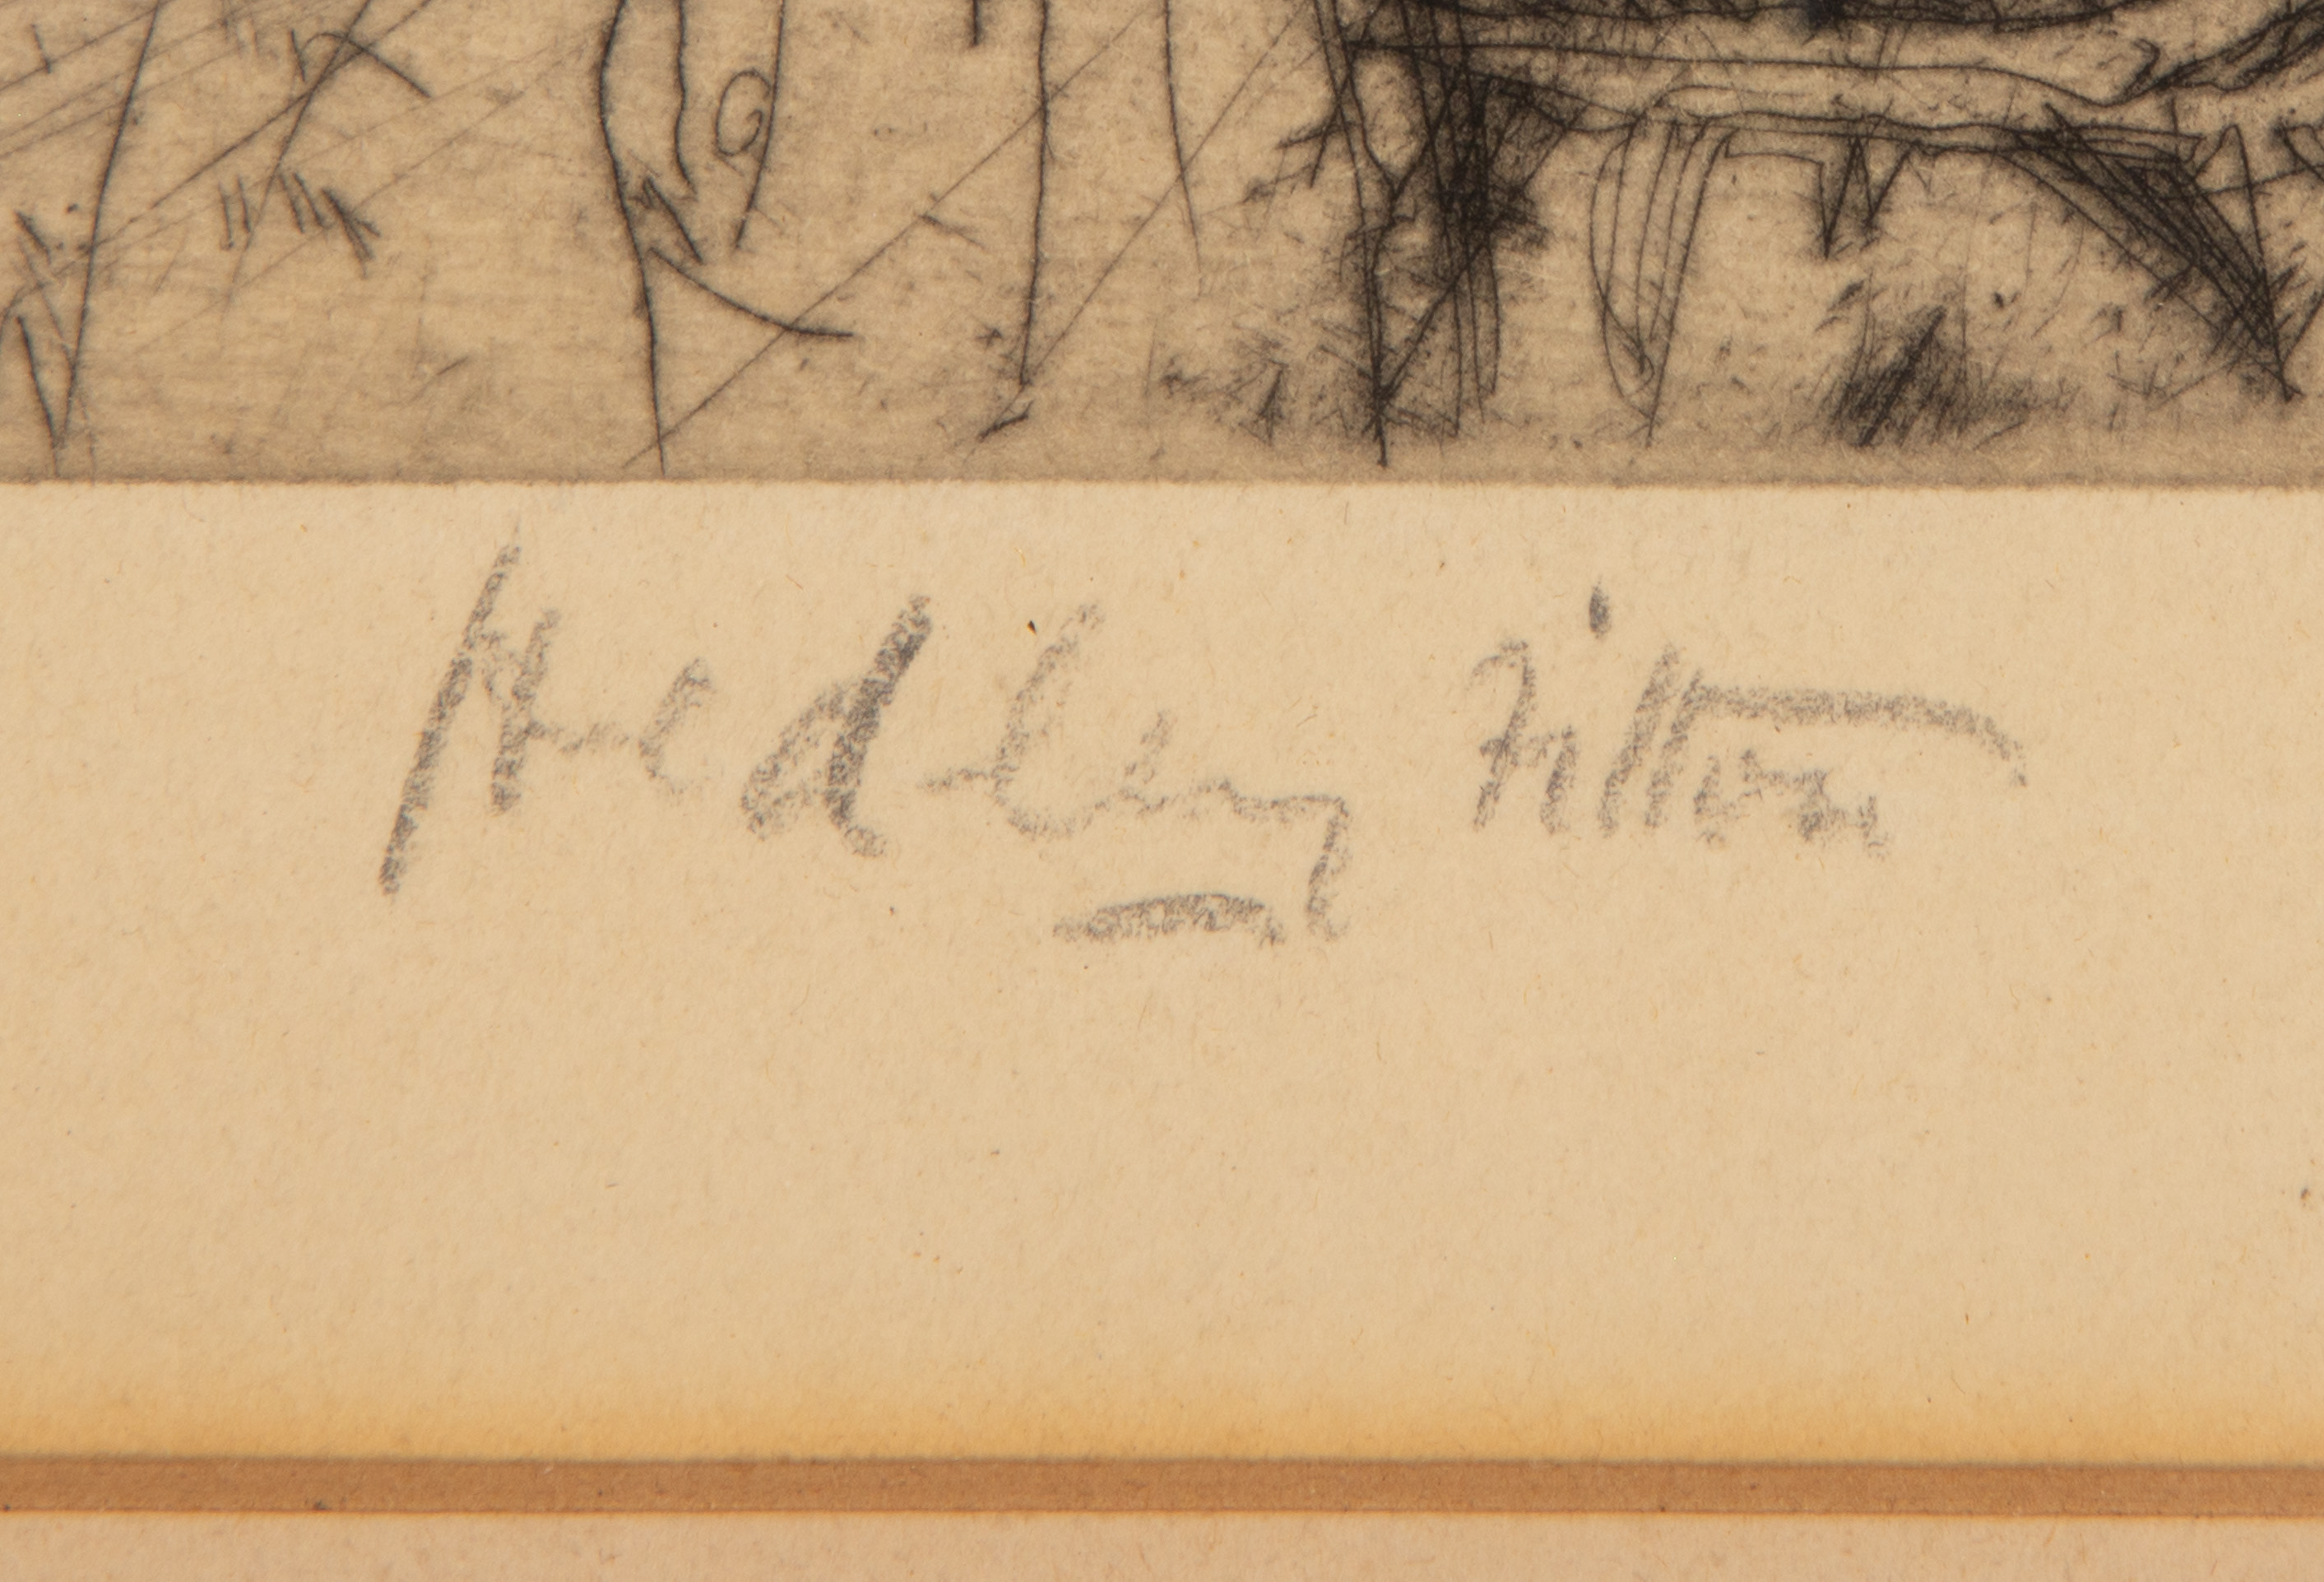 Hedley Fitton